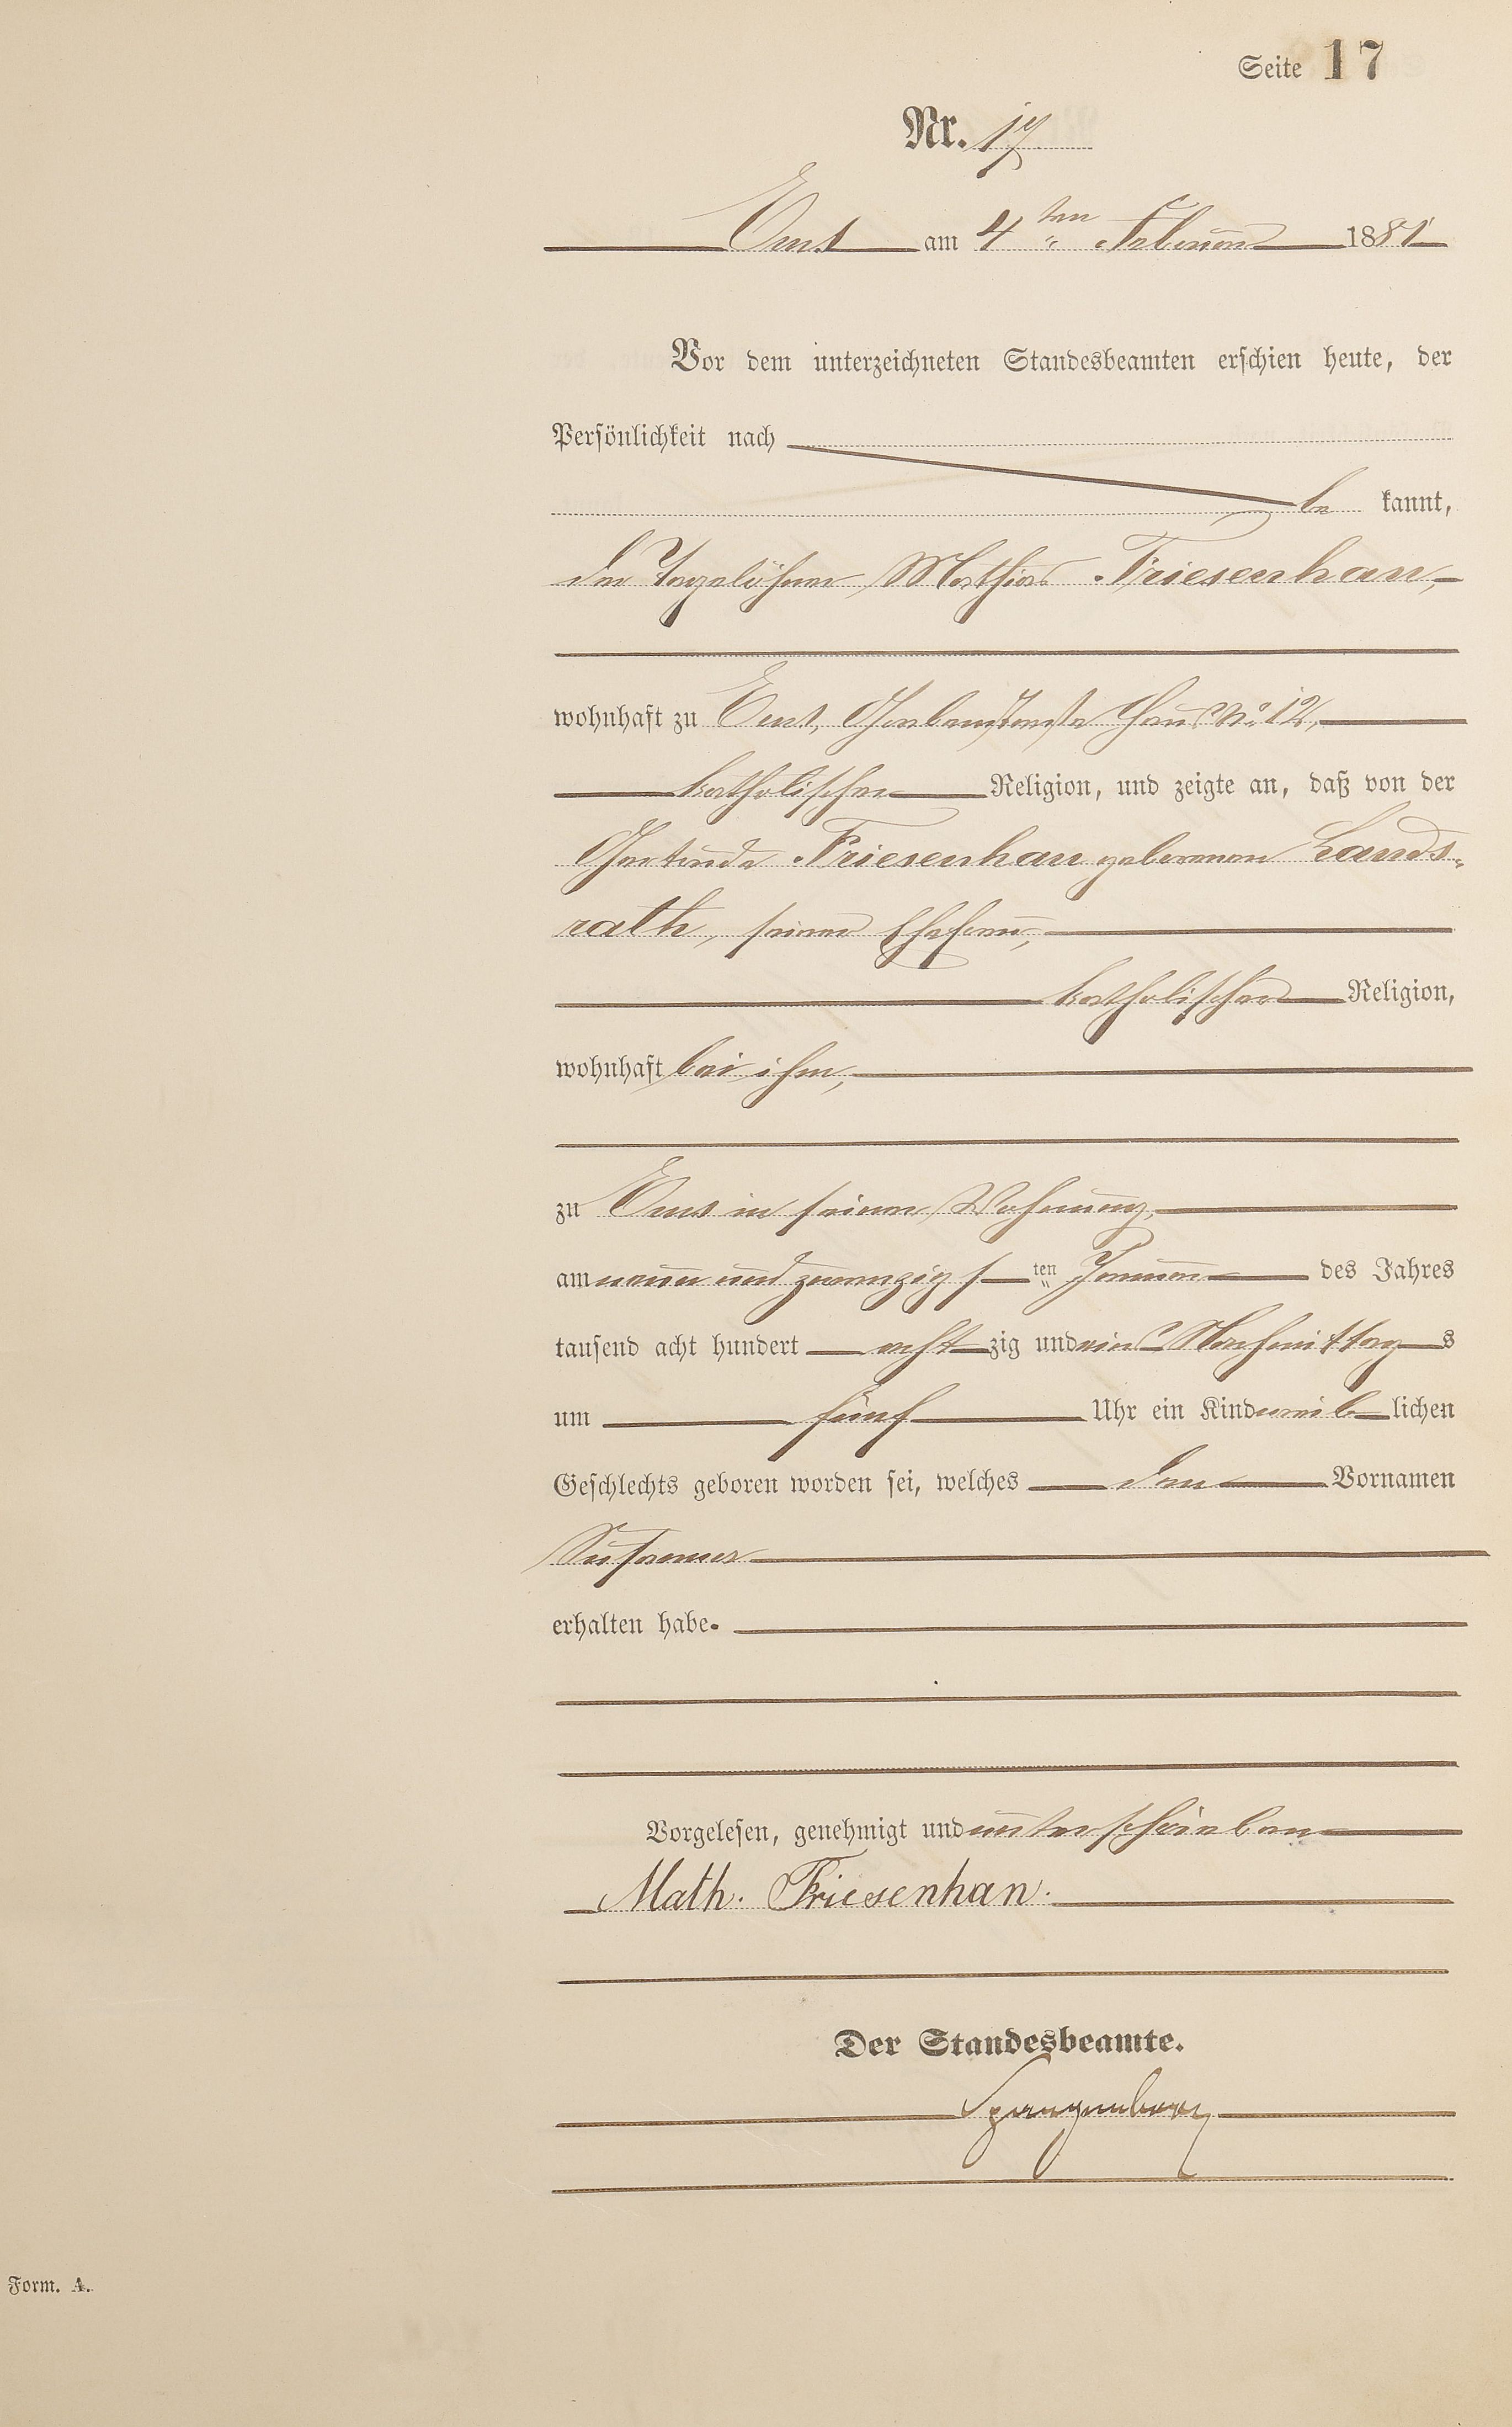 Seite 17
Nr. 17.
Ems am 4ten Februar 1881
Vor dem unterzeichneten Standesbeamten erschien heute, der
Persönlichkeit nach
be kannt,
der Tagelöhner Mathias Friesenhan,
wohnhaft zu Ems, Haus No 12,
katholischer Religion, und zeigte an, daß von der
Gertrude Friesenhan geborenen Lands-
rath, seiner Ehefrau,
katholischer Religion,
wohnhaft bei ihm,
zu Ems in seiner Wohnung,
am neun und zwanzigsten Januar des Jahres
tausend acht hundert acht zig und eins Nachmittag s
um fünf Uhr ein Kind weib lichen
Geschlechts geboren worden sei, welches den Vornamen
Susanna
erhalten habe.
Vorgelesen, genehmigt und unterschrieben
Math. Friesenhan.
Der Standesbeamte.
Spangenberg
Form. A.